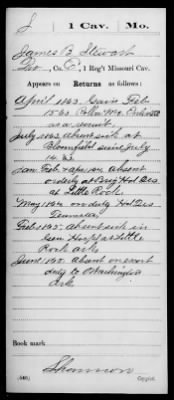 S 1 Cav. Mo.
James B. Stewart
Co. E, 1 Reg't Missouri Cav.
Appears on
Returns as follows:
April 1863. Gain Feb
1863
as a recruit
July 1863 absent sick at
Bloomfield since July
14. 63
Jan. Feb. absent
orderly at Hd Qrs
at Little Rock
May 1864 on duty Hd Qrs
Feb 1865 absent sick in
Gen Hospl at Little
Rock Arks
June 1865. absent on escort
duty to Washington
Ark
Shannon
(546)
Copyist.